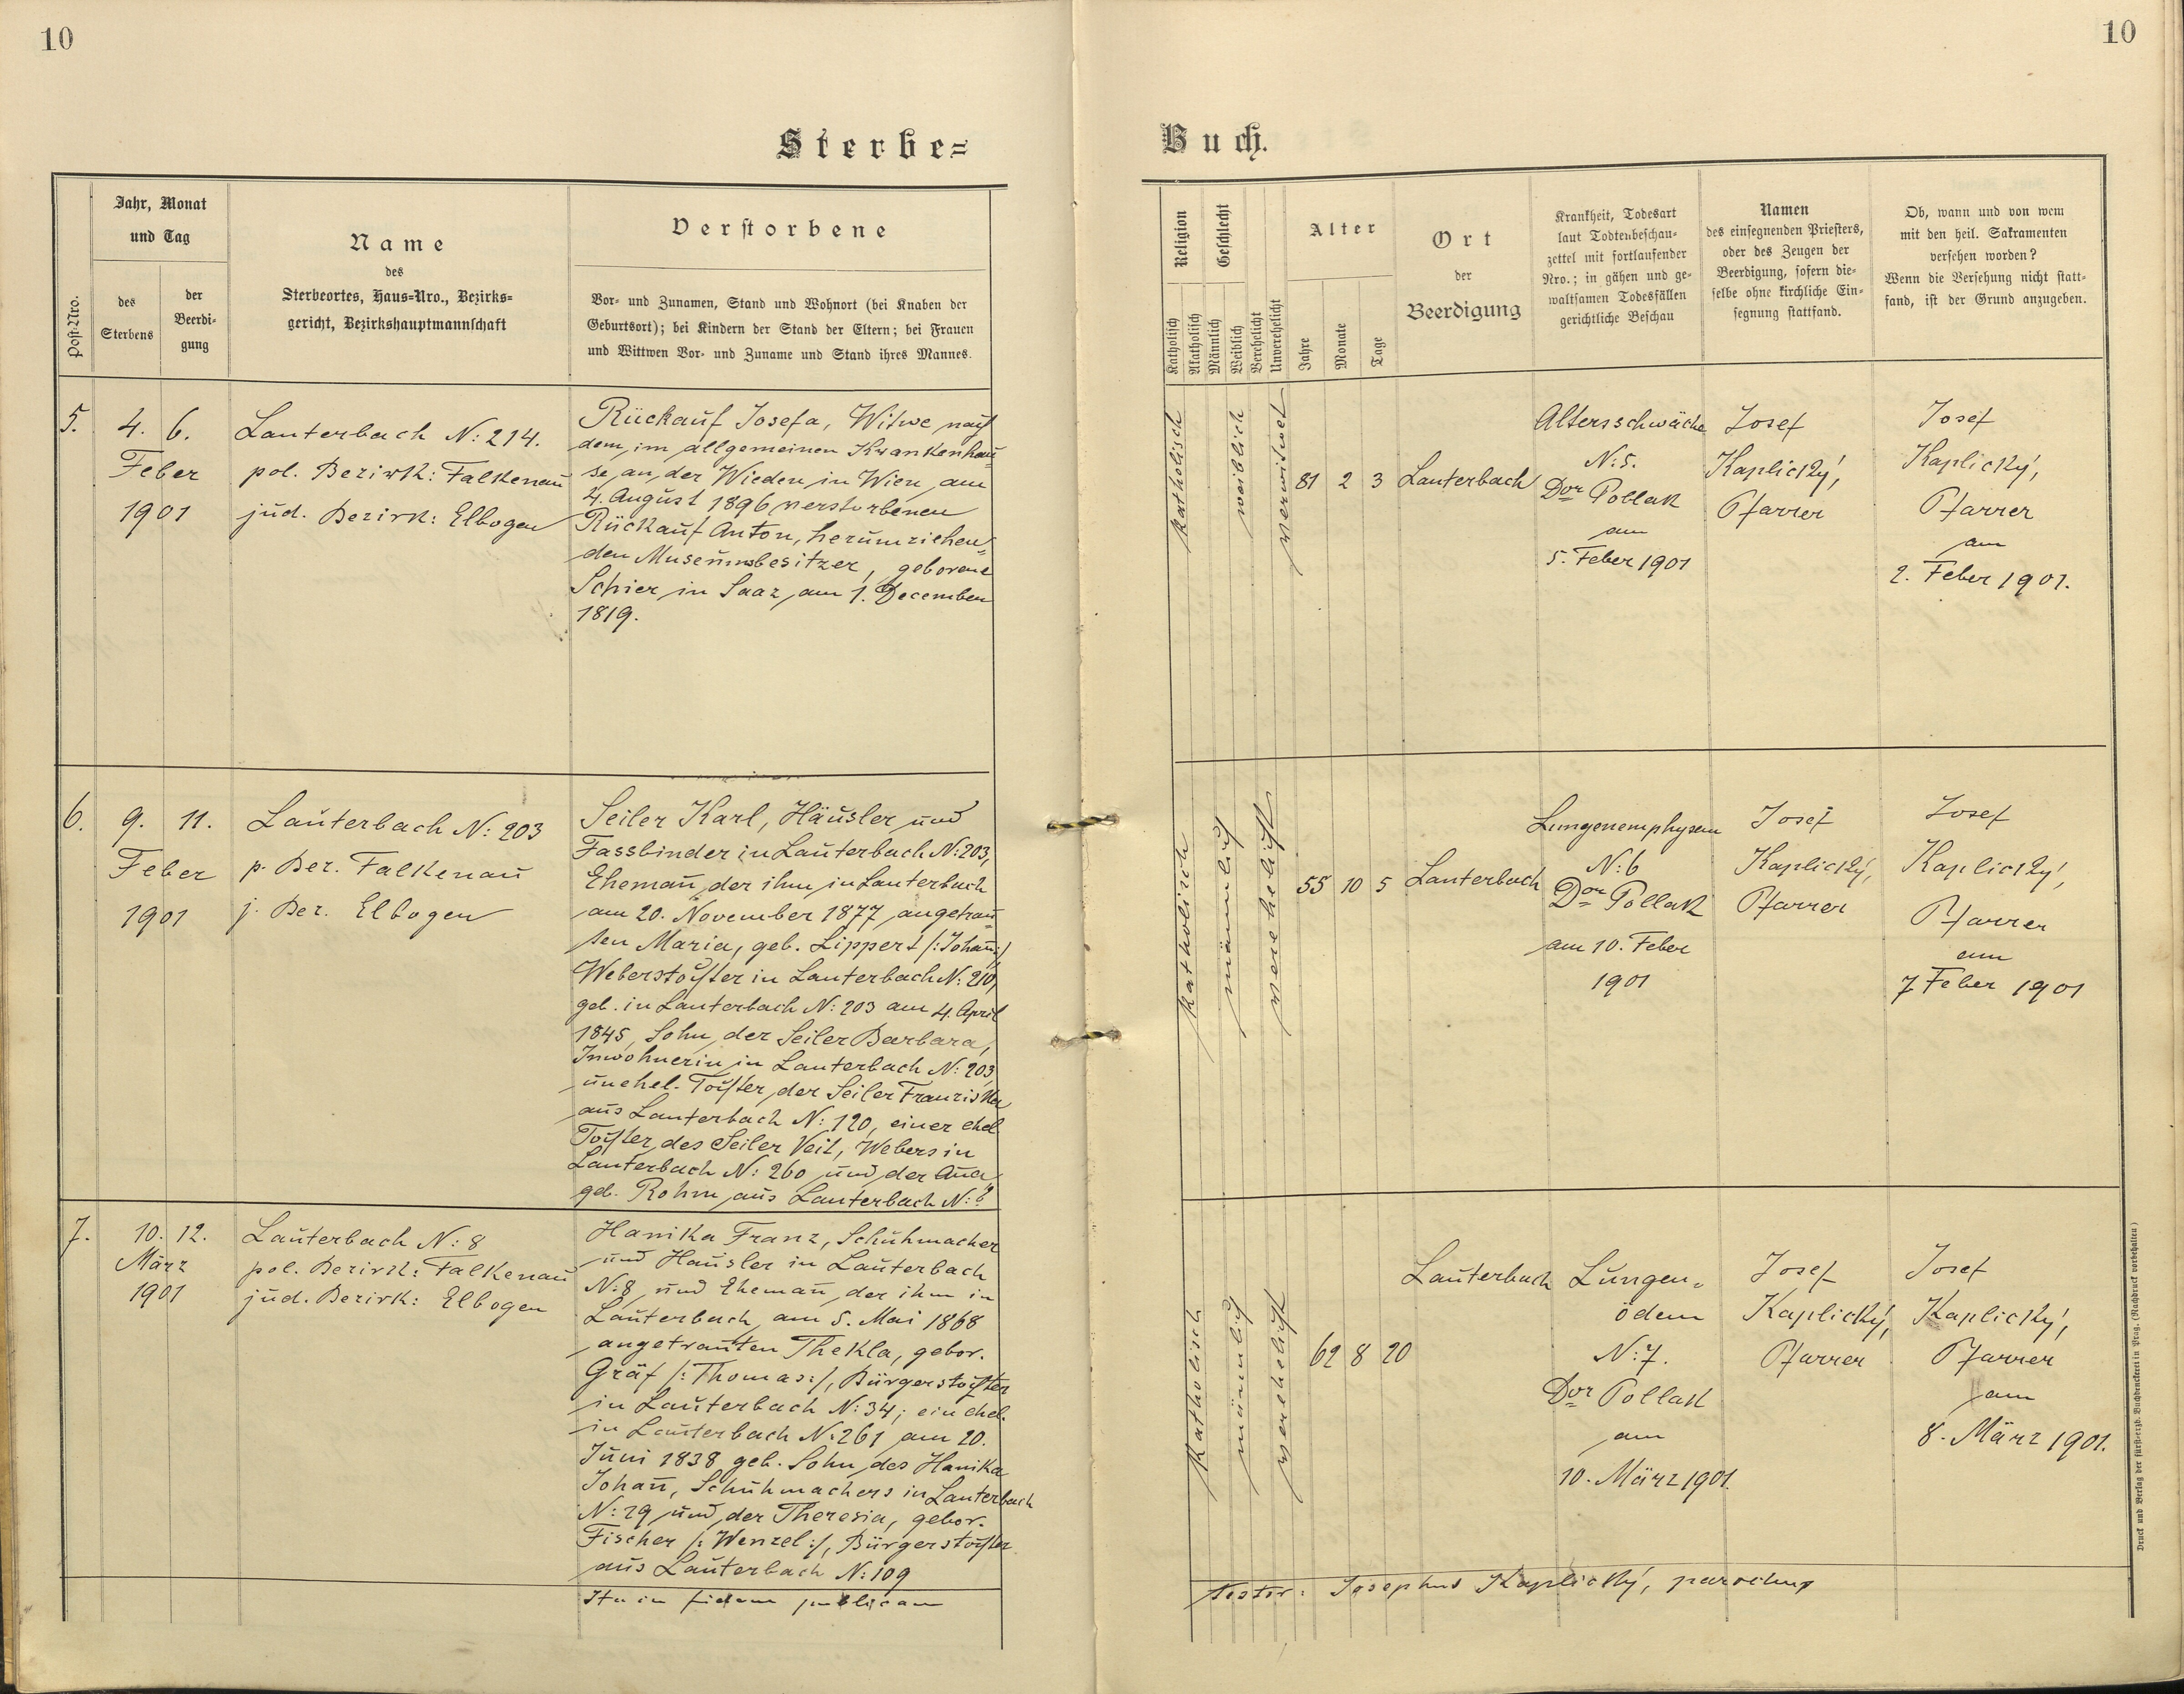 10
10
Sterbe=
Buch.
Post-Nro.
Jahr, Monat
und Tag
des
Sterbens
der
Beerdi-
gung
Name
des
Sterbeortes, Haus-Nro., Bezirks-
gericht, Bezirkshauptmannschaft
Verstorbene
Vor- und Zunamen, Stand und Wohnort (bei Knaben der
Geburtsort); bei Kindern der Stand der Eltern; bei Frauen
und Wittwen Vor- und Zuname und Stand ihres Mannes.
Religion
Katholisch
Akatholisch
Geschlecht
Männlich
Weiblich
Verehelicht
Unverehelicht
Alter
Jahre
Monate
Tage
Ort
der
Beerdigung
Krankheit, Todesart
laut Todtenbeschau-
zettel mit fortlaufender
Nro.; in gähen und ge-
waltsamen Todesfällen
gerichtliche Beschau
Namen
des einsegnenden Priesters,
oder des Zeugen der
Beerdigung, sofern die-
selbe ohne kirchliche Ein-
segnung stattfand.
Ob, wann und von wem
mit den heil. Sakramenten
versehen worden?
Wenn die Versehung nicht statt-
fand, ist der Grund anzugeben.
5.
4. 6.
Feber
1901
Lauterbach N: 214.
pol. Bezirk: Falkenau
jud. Bezirk: Elbogen
Rückauf Josefa, Witwe nach
dem im allgemeinen Krankenhau=
se an der Wieden in Wien am
4. August 1896 verstorbenen
Rückauf Anton, herumziehen=
den Museumsbesitzer, geborene
Schier in Saaz am 1. December
1819.
katholisch
weiblich
verwitwet
81 2 3
Lauterbach
Altersschwäche
N: 5.
Dor Pollak
am
5. Feber 1901
Josef
Kaplický,
Pfarrer
Josef
Kaplický,
Pfarrer
am
2. Feber 1901.
6.
9. 11.
Feber
1901
Lauterbach N: 203
p. Bez. Falkenau
j. Bez. Elbogen
Seiler Karl, Häusler und
Fassbinder in Lauterbach N: 203,
Ehemañ der ihm in Lauterbach
am 20. November 1877 angetrau=
ten Maria, geb. Lippert /:Johañ:/
Weberstochter in Lauterbach N: 210,
geb. in Lauterbach N: 203 am 4. April
1845, Sohn der Seiler Barbara,
Inwohnerin in Lauterbach N: 203
unehel. Tochter der Seiler Franziska
aus Lauterbach N: 120, einer ehel
Tochter des Seiler Veit, Webers in
Lauterbach N: 260 und der Aña
geb. Rohm aus Lauterbach N:
katholisch
männlich
verehelicht
55 10 5
Lauterbach
Lungenemphysem
N: 6
Dor Pollak
am 10. Feber
1901
Josef
Kaplický,
Pfarrer
Josef
Kaplický,
Pfarrer
am
7 Feber 1901
7.
10. 12.
März
1901
Lauterbach N: 8
pol. Bezirk: Falkenau
jud. Bezirk: Elbogen
Hanika Franz, Schuhmacher
und Häusler in Lauterbach
N: 8 und Ehemañ der ihm in
Lauterbach am 5. Mai 1868
angetrauten Thekla, gebor.
Gräf /:Thomas:/, Bürgerstochter
in Lauterbach N: 34; ein ehel.
in Lauterbach N: 261 am 20.
Juni 1838 geb. Sohn des Hanika
Johañ, Schuhmachers in Lauterbach
N: 29 und der Theresia, gebor.
Fischer /:Wenzel:/, Bürgerstochter
aus Lauterbach N: 109
katholisch
männlich
verehelicht
62 8 20
Lauterbach
Lungen=
ödem
N: 7.
Dor Pollak
am
10. März 1901.
Josef
Kaplický,
Pfarrer
Josef
Kaplický,
Pfarrer
am
8. März 1901.
Ita in fidem publicam
testor: Josephus Kaplický, parochus
Druck und Verlag der fürst-erzb. Buchdruckerei in Prag. (Nachdruck vorbehalten)